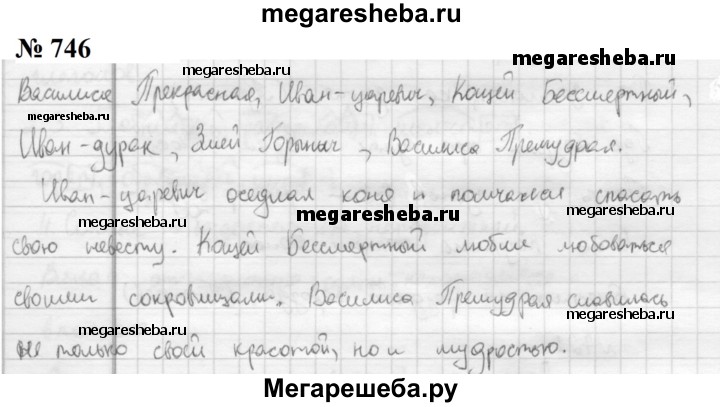 megaresheba.ru
№ 746
megaresheba.ru
megaresheba.ru
Василиса Прекрасная, Иван-царевич, Кощей Бессмертный,
megaresheba.ru
megaresheba.ru
Иван-дурак, Змей Горыныч, Василиса Премудрая.
megaresheba.ru
Иван-царевич оседлал коня и помчался спасать
megaresheba.ru
megaresheba.ru
megaresheba.ru
свою невесту. Кощей Бессмертный любил любоваться
своими сокровищами. Василиса Премудрая славилась
megaresheba.ru
megaresheba.ru
не только своей красотой, но и мудростью.
Мегарешеба.ру